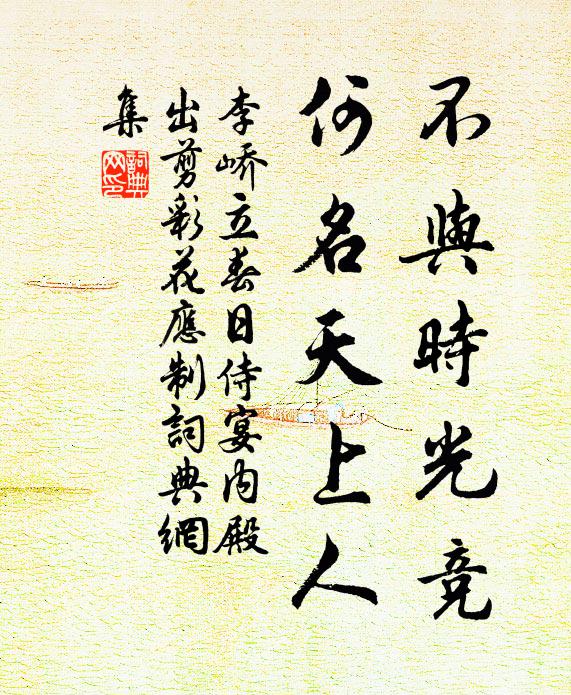 不與時光竞
何名天上人
李嶠立春日侍宴内殿
出剪彩花應制詞典網
集
詞典
网印